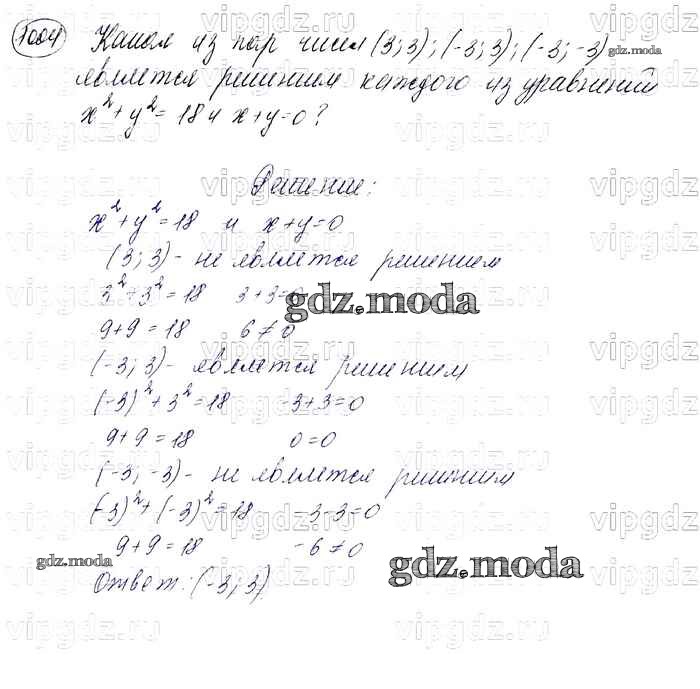 1004 Какая из пар чисел (3; 3); (-3; 3); (-3; -3)
является решением каждого из уравнений
x² + y² = 18 и x + y = 0?
Решение:
x² + y² = 18 и x + y = 0
(3; 3) - не является решением
3² + 3² = 18 3 + 3 = 0
9 + 9 = 18 6 ≠ 0
(-3; 3) - является решением
(-3)² + 3² = 18 -3 + 3 = 0
9 + 9 = 18 0 = 0
(-3; -3) - не является решением
(-3)² + (-3)² = 18 -3 - 3 = 0
9 + 9 = 18 -6 ≠ 0
Ответ: (-3; 3)
gdz.moda
gdz.moda
gdz.moda
gdz.moda
vipgdz.ru